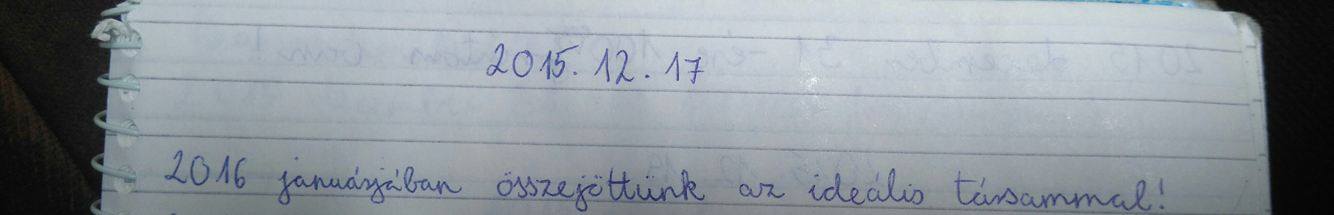 2015. 12. 17
2016 januárjában összejöttünk az ideális társammal!